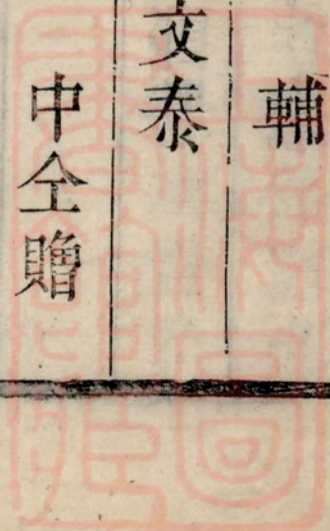 輔
文泰
中仝贈